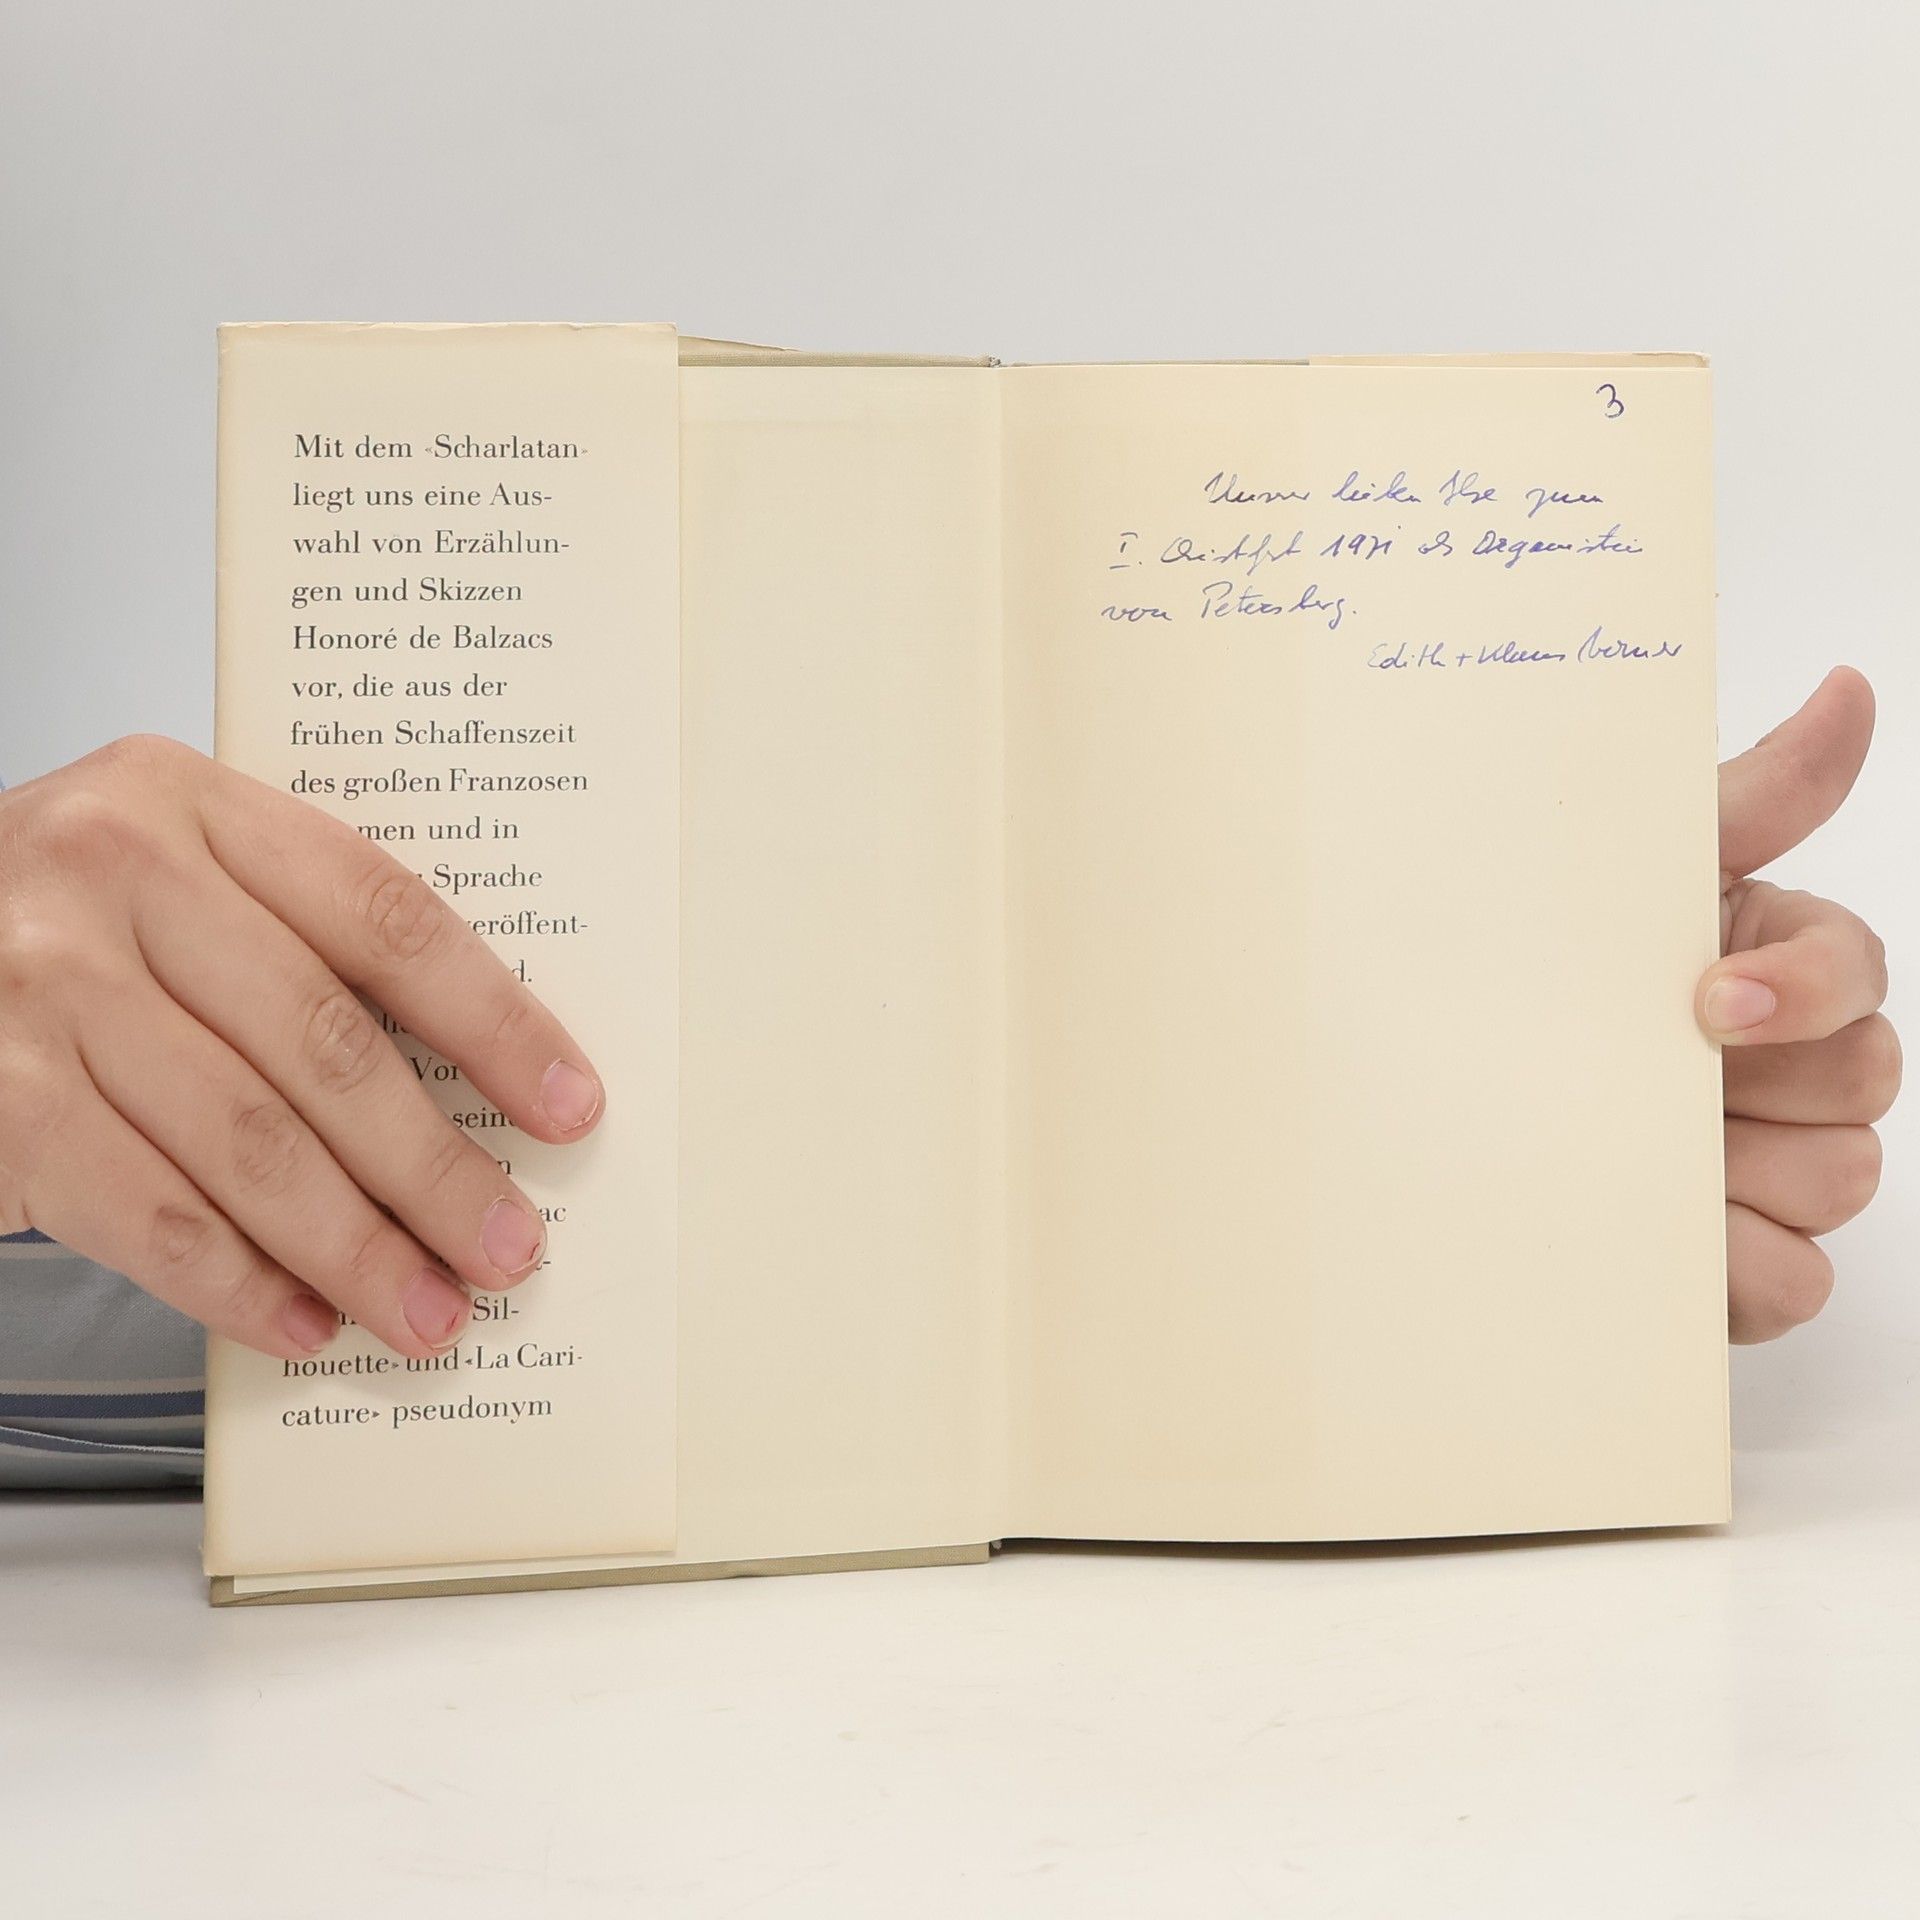 Mit dem «Scharlatan»
liegt uns eine Aus-
wahl von Erzählun-
gen und Skizzen
Honoré de Balzacs
vor, die aus der
frühen Schaffenszeit
des großen Franzosen
men und in
Sprache
eröffent-
d.
Vor
sein
n
ac
Sil-
houette» und «La Cari-
cature» pseudonym
3
Unserer lieben Ilse zum
I. Christfest 1971 als Organistin
von Petersberg.
Edith + Klaus